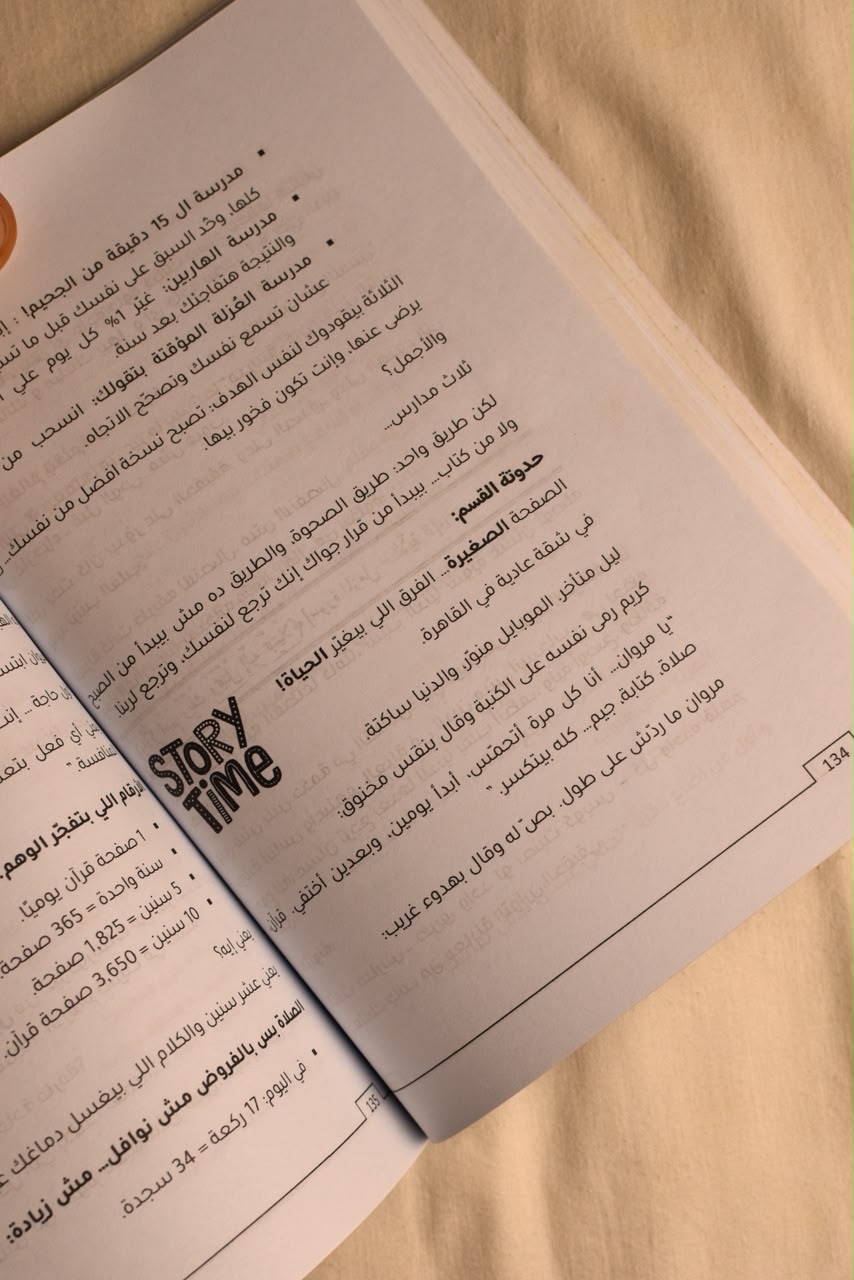 مدرسة ال 15 دقيقة من الجحيم! :
كلها، وخُد السبق على نفسك قبل ما
مدرسة الهاربين: غيّر 1% كل يوم علي
والنتيجة هتفاجئك بعد سنة.
مدرسة العُزلة المؤقتة بتقولك: انسحب من
عشان تسمع نفسك وتصحّح الاتجاه.
الثلاثة بيقودوك لنفس الهدف: تصبح نسخة افضل من نفسك...
يرضى عنها، وإنت تكون فخور بيها.
والأجمل؟
ثلاث مدارس...
لكن طريق واحد: طريق الصحوة. والطريق ده مش بيبدأ من الصبح
ولا من كتاب... بيبدأ من قرار جواك إنك ترجع لنفسك، وترجع لربنا.
حدوتة القسم:
الصفحة الصغيرة... الفرق اللي بيغيّر الحياة!
في شقة عادية في القاهرة.
ليل متأخر. الموبايل منوّر، والدنيا ساكتة.
كريم رمى نفسه على الكنبة وقال بنفس مخنوق:
"يا مروان... أنا كل مرة أتحمّس، أبدأ يومين، وبعدين أختفي. قرآن،
صلاة، كتابة، جيم... كله بيتكسر."
مروان ما ردّش على طول. بصّ له وقال بهدوء غريب:
STORY
TIME
134
حاجة... إنت
أي فعل بتعـ
المنافسة."
الأرقام اللي بتفجّر الوهم.
1 صفحة قرآن يوميًا.
سنة واحدة = 365 صفحة.
5 سنين = 1,825 صفحة.
10 سنين = 3,650 صفحة قرآن.
يعني إيه؟
يعني عشر سنين والكلام اللي بيغسل دماغك
الصلاة بس بالفروض مش نوافل... مش زيادة:
في اليوم: 17 ركعة = 34 سجدة.
135